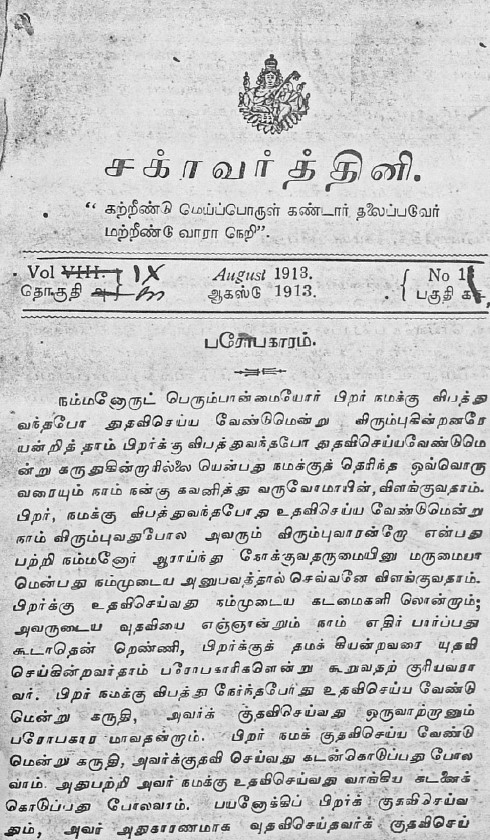 சக்ராவர்த்தினி.
“ கற்றீண்டு மெய்ப்பொருள் கண்டார் தலைப்படுவேர்
மற்றீண்டு வாரா நெறி”.
Vol VIII. IX August 1913. No 1
தொகுதி ஆகஸ்டு 1913. பகுதி
பரோபகாரம்.
நம்மனோருட் பெரும்பான்மையோர் பிறர் நமக்கு விபத்து
வந்தபோ துதவிசெய்ய வேண்டுமென்று விரும்புகின்றனரே
யன்றித் தாம் பிறர்க்கு விபத்துவந்தபோ துதவிசெய்யவேண்டுமெ
ன்று கருதுகின்றாரில்லை யென்பது நமக்குத் தெரிந்த ஒவ்வொரு
வரையும் நாம் நன்கு கவனித்து வருவோமாயின், விளங்குவதாம்.
பிறர், நமக்கு விபத்துவந்தபோது உதவிசெய்ய வேண்டுமென்று
நாம் விரும்புவதுபோல அவரும் விரும்புவாரன்றோ என்பது
பற்றி நம்மனோர் ஆராய்ந்து நோக்குவதருமையினு மருமையா
மென்பது நம்முடைய அனுபவத்தால் செவ்வனே விளங்குவதாம்.
பிறர்க்கு உதவிசெய்வது நம்முடைய கடமைகளி லொன்றும்;
அவருடைய வுதவியை எஞ்ஞான்றும் நாம் எதிர் பார்ப்பது
கூடாதென் றெண்ணி, பிறர்க்குத் தமக் கியன்றவரை யுதவி
செய்கின்றவர்தாம் பரோபகாரிகளென்று கூறுவதற் குரியவரா
வர். பிறர் நமக்கு விபத்து நேர்ந்தபோது உதவிசெய்ய வேண்டு
மென்று கருதி, அவர்க் குதவிசெய்வது ஒருவாற்றானும்
பரோபகார மாவதன்றாம். பிறர் நமக் குதவிசெய்ய வேண்டு
மென்று கருதி, அவர்க்குதவி செய்வது கடன்கொடுப்பது போல
வாம். அதுபற்றி அவர் நமக்கு உதவிசெய்வது வாங்கிய கடனைக்
கொடுப்பது போலவாம். பயனோக்கிப் பிறர்க் குதவிசெய்வ
தும், அவர் அதுகாரணமாக வுதவிசெய்தவர்க் குதவிசெய்